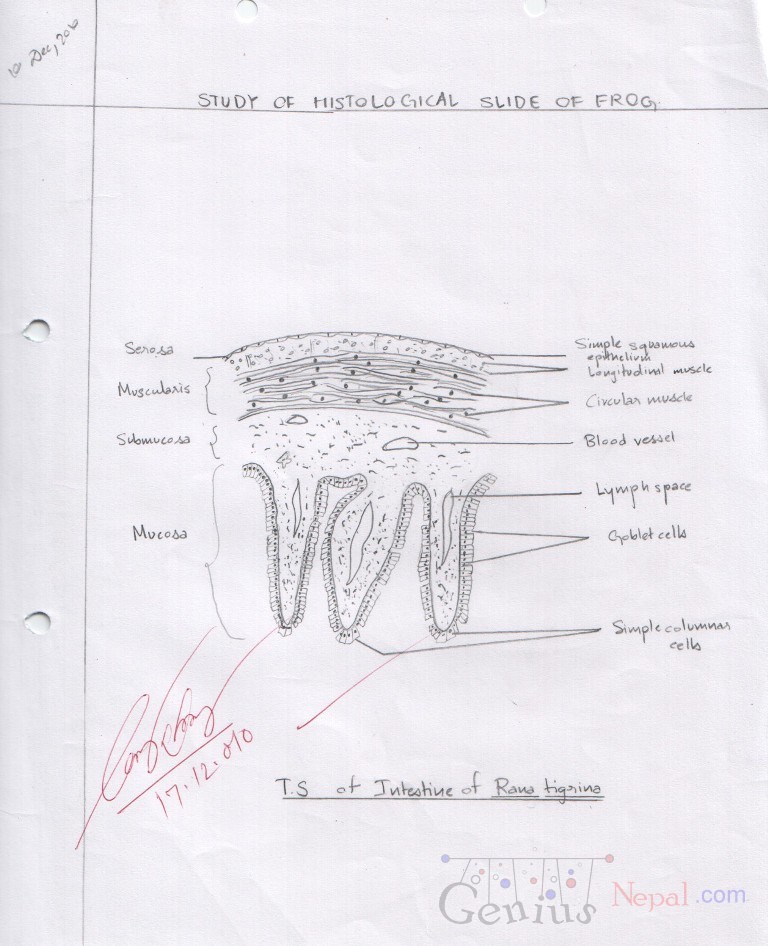 10 Dec, 2010
STUDY OF HISTOLOGICAL SLIDE OF FROG
Serosa
Muscularis
Submucosa
Mucosa
Simple squamous
epithelium
Longitudinal muscle
Circular muscle
Blood vessel
Lymph space
Goblet cells
Simple columnar
cells
17.12.010
T.S of Intestine of Rana tigrina
Genius Nepal.com